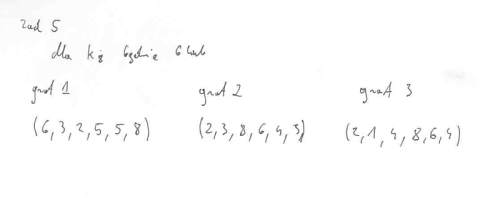 zad 5
dla k8 będzie 6 liczb
graf 1 graf 2 graf 3
(6,3,2,5,5,8) (2,3,8,6,4,3) (2,1,4,8,6,4)